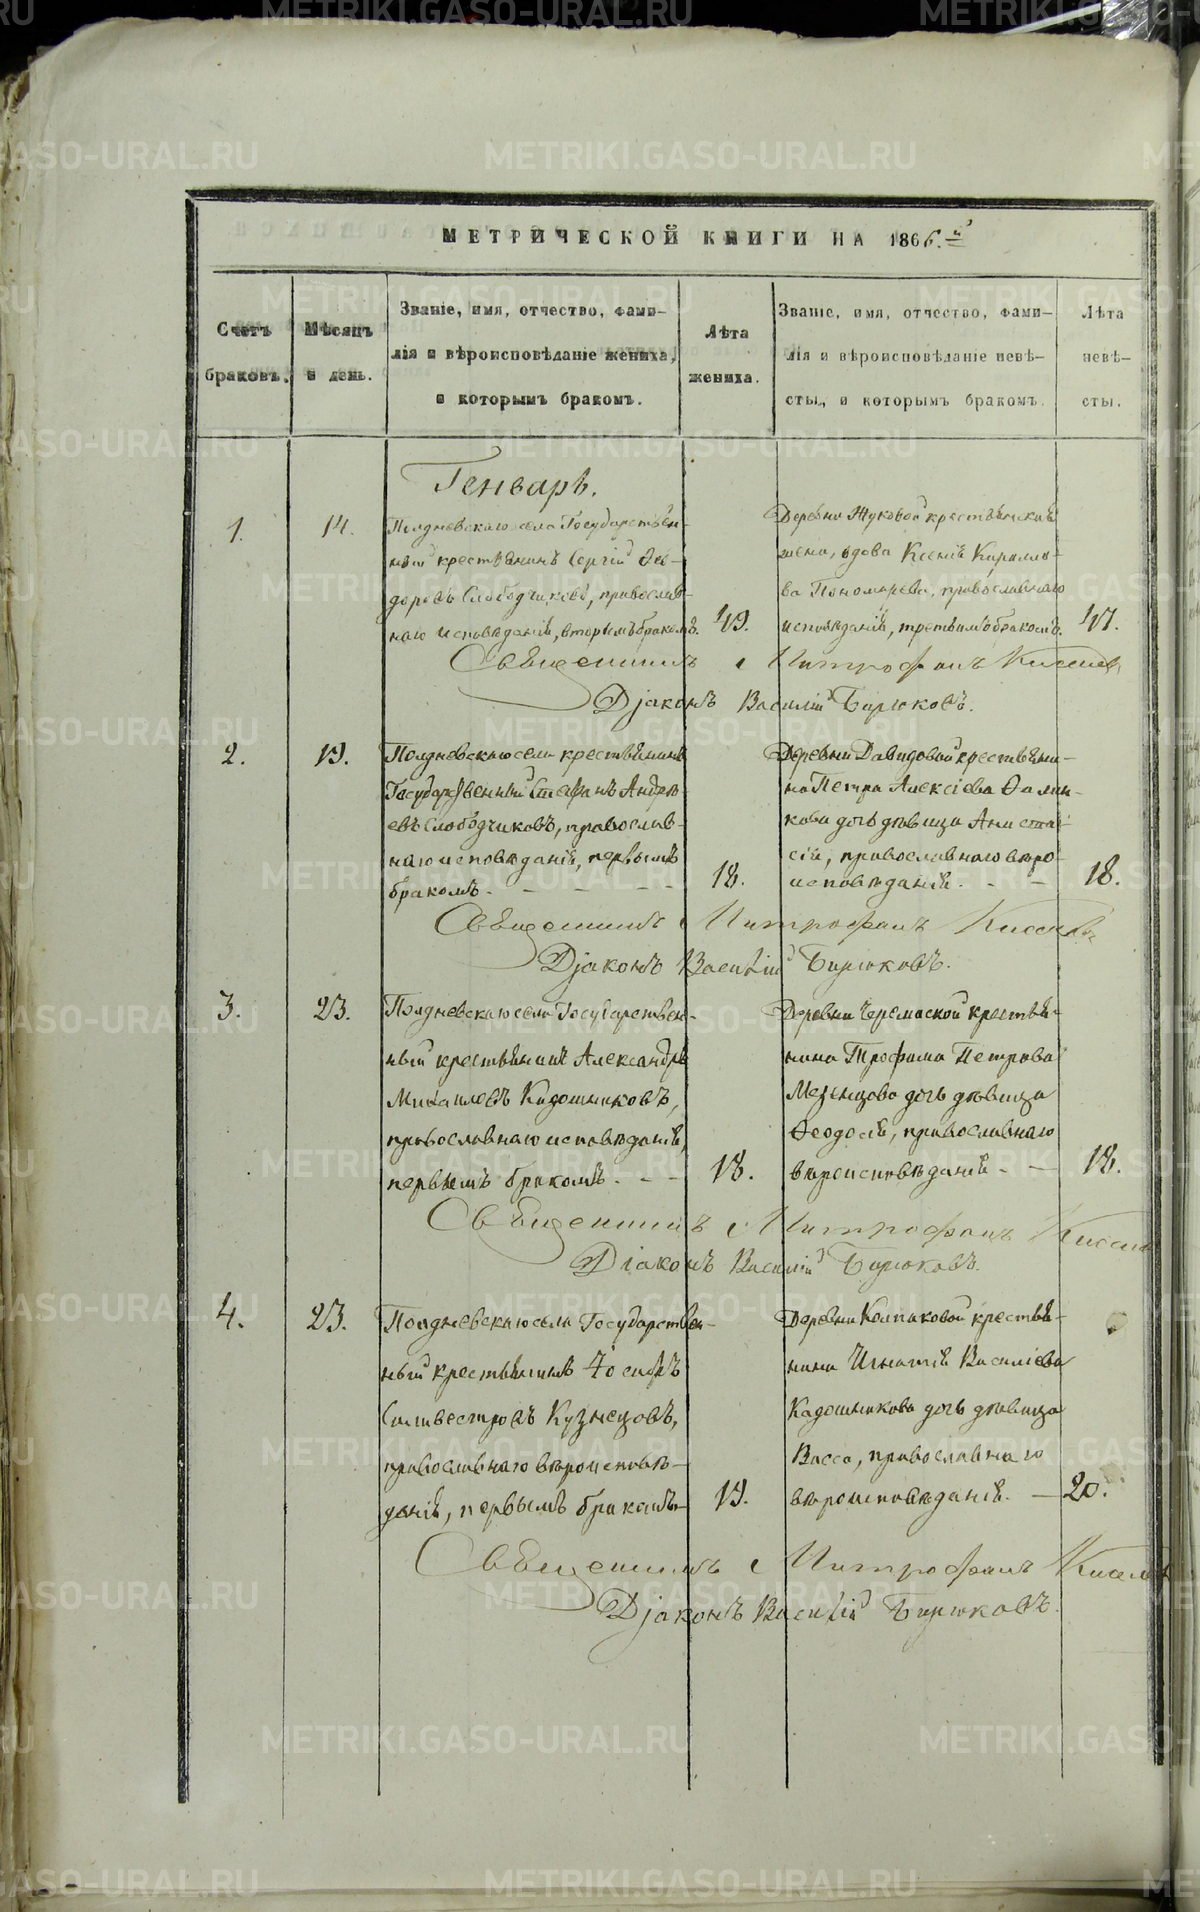 МЕТРИЧЕСКОЙ КНИГИ НА 1866.й
Счетъ
браковъ.
Мѣсяцъ
и день.
Званіе, имя, отчество, фами-
лія и вѣроисповѣданіе жениха,
и которымъ бракомъ.
Лѣта
жениха.
Званіе, имя, отчество, фами-
лія и вѣроисповѣданіе невѣ-
сты, и которымъ бракомъ.
Лѣта
невѣ-
сты.
Генварь.
1.
14.
Полдневскаго села Государствен-
ный крестьянинъ Сергій Ѳео-
доровъ Слободчиковъ, православ-
наго исповѣданія, вторымъ бракомъ.
49.
Деревни Жуковой крестьянская
жена, вдова Ксенія Кирилло-
ва Пономарева, православнаго
исповѣданія, третьимъ бракомъ.
47.
Священникъ Митрофанъ
Дjаконъ Василій Бирюковъ.
2.
19.
Полдневскаго села крестьянинъ
Государственный Стефанъ Андре-
евъ Слободчиковъ, православ-
наго исповѣданія, первымъ
бракомъ. - - - -
18.
Деревни Давидовой крестьяни-
на Петра Алексіева
кова дочь дѣвица Анаста-
сія, православнаго вѣро-
исповѣданія. - -
18.
Священникъ Митрофанъ
Дjаконъ Василій Бирюковъ.
3.
23.
Полдневскаго села Государствен-
ный крестьянинъ Александръ
Михаиловъ Кадошниковъ,
православнаго исповѣданія,
первымъ бракомъ. - -
18.
Деревни Черемиской крестья-
нина Трофима Петрова
Мезенцова дочь дѣвица
Ѳеодосія, православнаго
вѣроисповѣданія - -
18.
Священникъ Митрофанъ
Дiаконъ Василій Бирюковъ.
4.
23.
Полдневскаго села Государствен-
ный крестьянинъ Іосифъ
Силивестровъ Кузнецовъ,
православнаго вѣроисповѣ-
данія, первымъ бракомъ-
19.
Деревни Колпаковой крестья-
нина Игнатія Василіева
Кадошникова дочь дѣвица
Васса, православнаго
вѣроисповѣданія. -
20.
Священникъ Митрофанъ
Дjаконъ Василій Бирюковъ.
METRIKI.GASO-URAL.RU